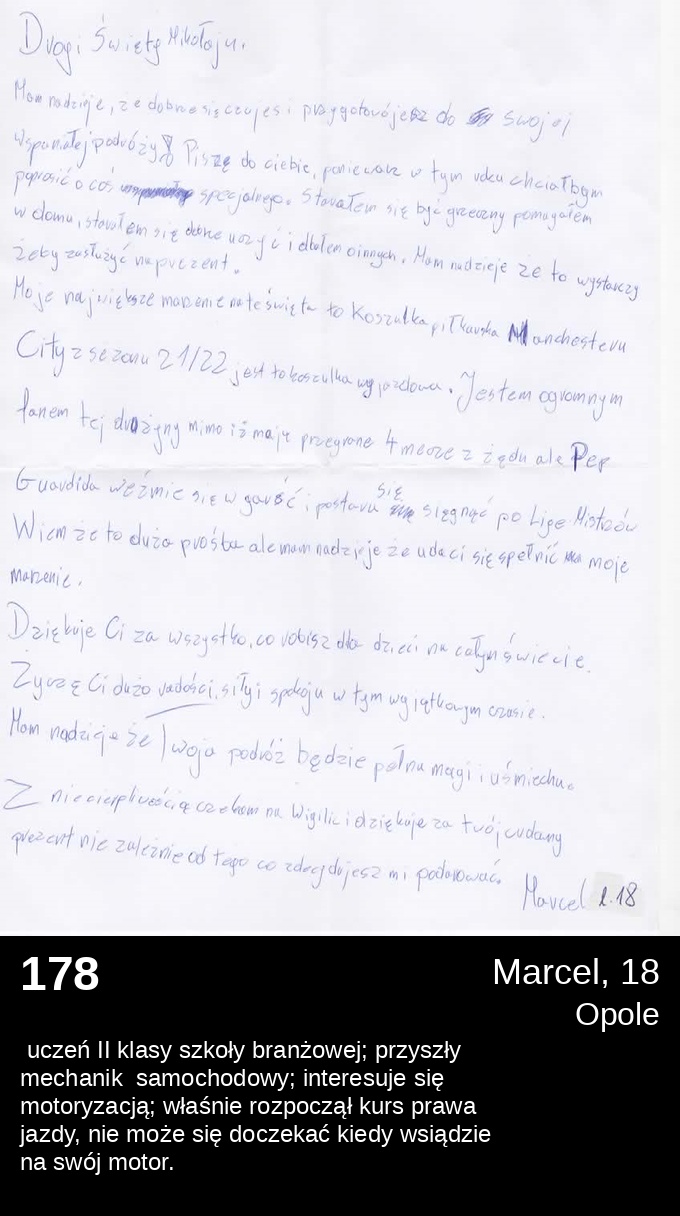 Drogi Święty Mikołaju.
Mam nadzieje, że dobrze się czujesi przygotowójesz do swojej
wspaniałej podróży! Piszę do ciebie, poniewarz w tym roku chciałbym
poprosić o coś specjalnego. Starałem się być grzeczny pomagałem
w domu, starałem się dobrze uczyć i dbałem oinnych. Mam nadzieje że to wystarczy
żeby zasłużyć na prezent.
Moje największe marzenie na te święta to Koszulka piłkarska Manchesteru
City z sezonu 21/22 jest to koszulka wyjazdowa. Jestem ogromnym
fanem tej drużyny mimo iż mają przegrane 4 mecze z żędu ale Pep
Guardida weźmie się w garść i postara się sięgnąć po Lige Mistrzów
Wiem że to duża prośba ale mam nadzieje że uda ci się spełnić moje
marzenie.
Dziękuje Ci za wszystko, co robisz dla dzieci na całym świecie.
Życzę Ci dużo radości, siły i spokoju w tym wyjątkowym czasie.
Mam nadzieje że Twoja podróż będzie pełna magi i uśmiechu.
Z niecierpliwością czekam na Wigilie i dziękuje za twój cudowny
prezent nie zależnie od tego co zdecydujesz mi podarować.
Marcel l.18
178
Marcel, 18
Opole
uczeń II klasy szkoły branżowej; przyszły
mechanik samochodowy; interesuje się
motoryzacją; właśnie rozpoczął kurs prawa
jazdy, nie może się doczekać kiedy wsiądzie
na swój motor.